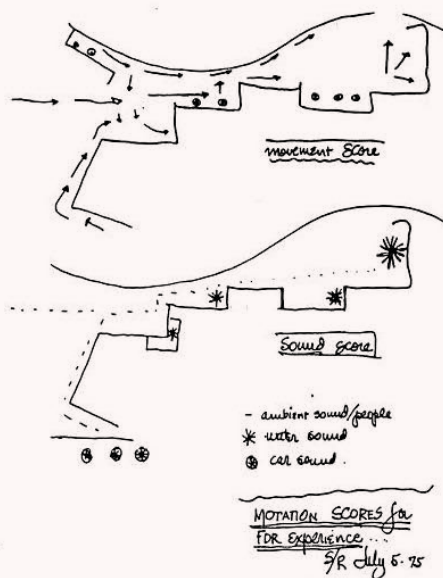 movement Score
Sound score
- ambient sound/people
water sound
car sound.
MOTATION SCORES for
FDR Experience ...
S/R July 5-75